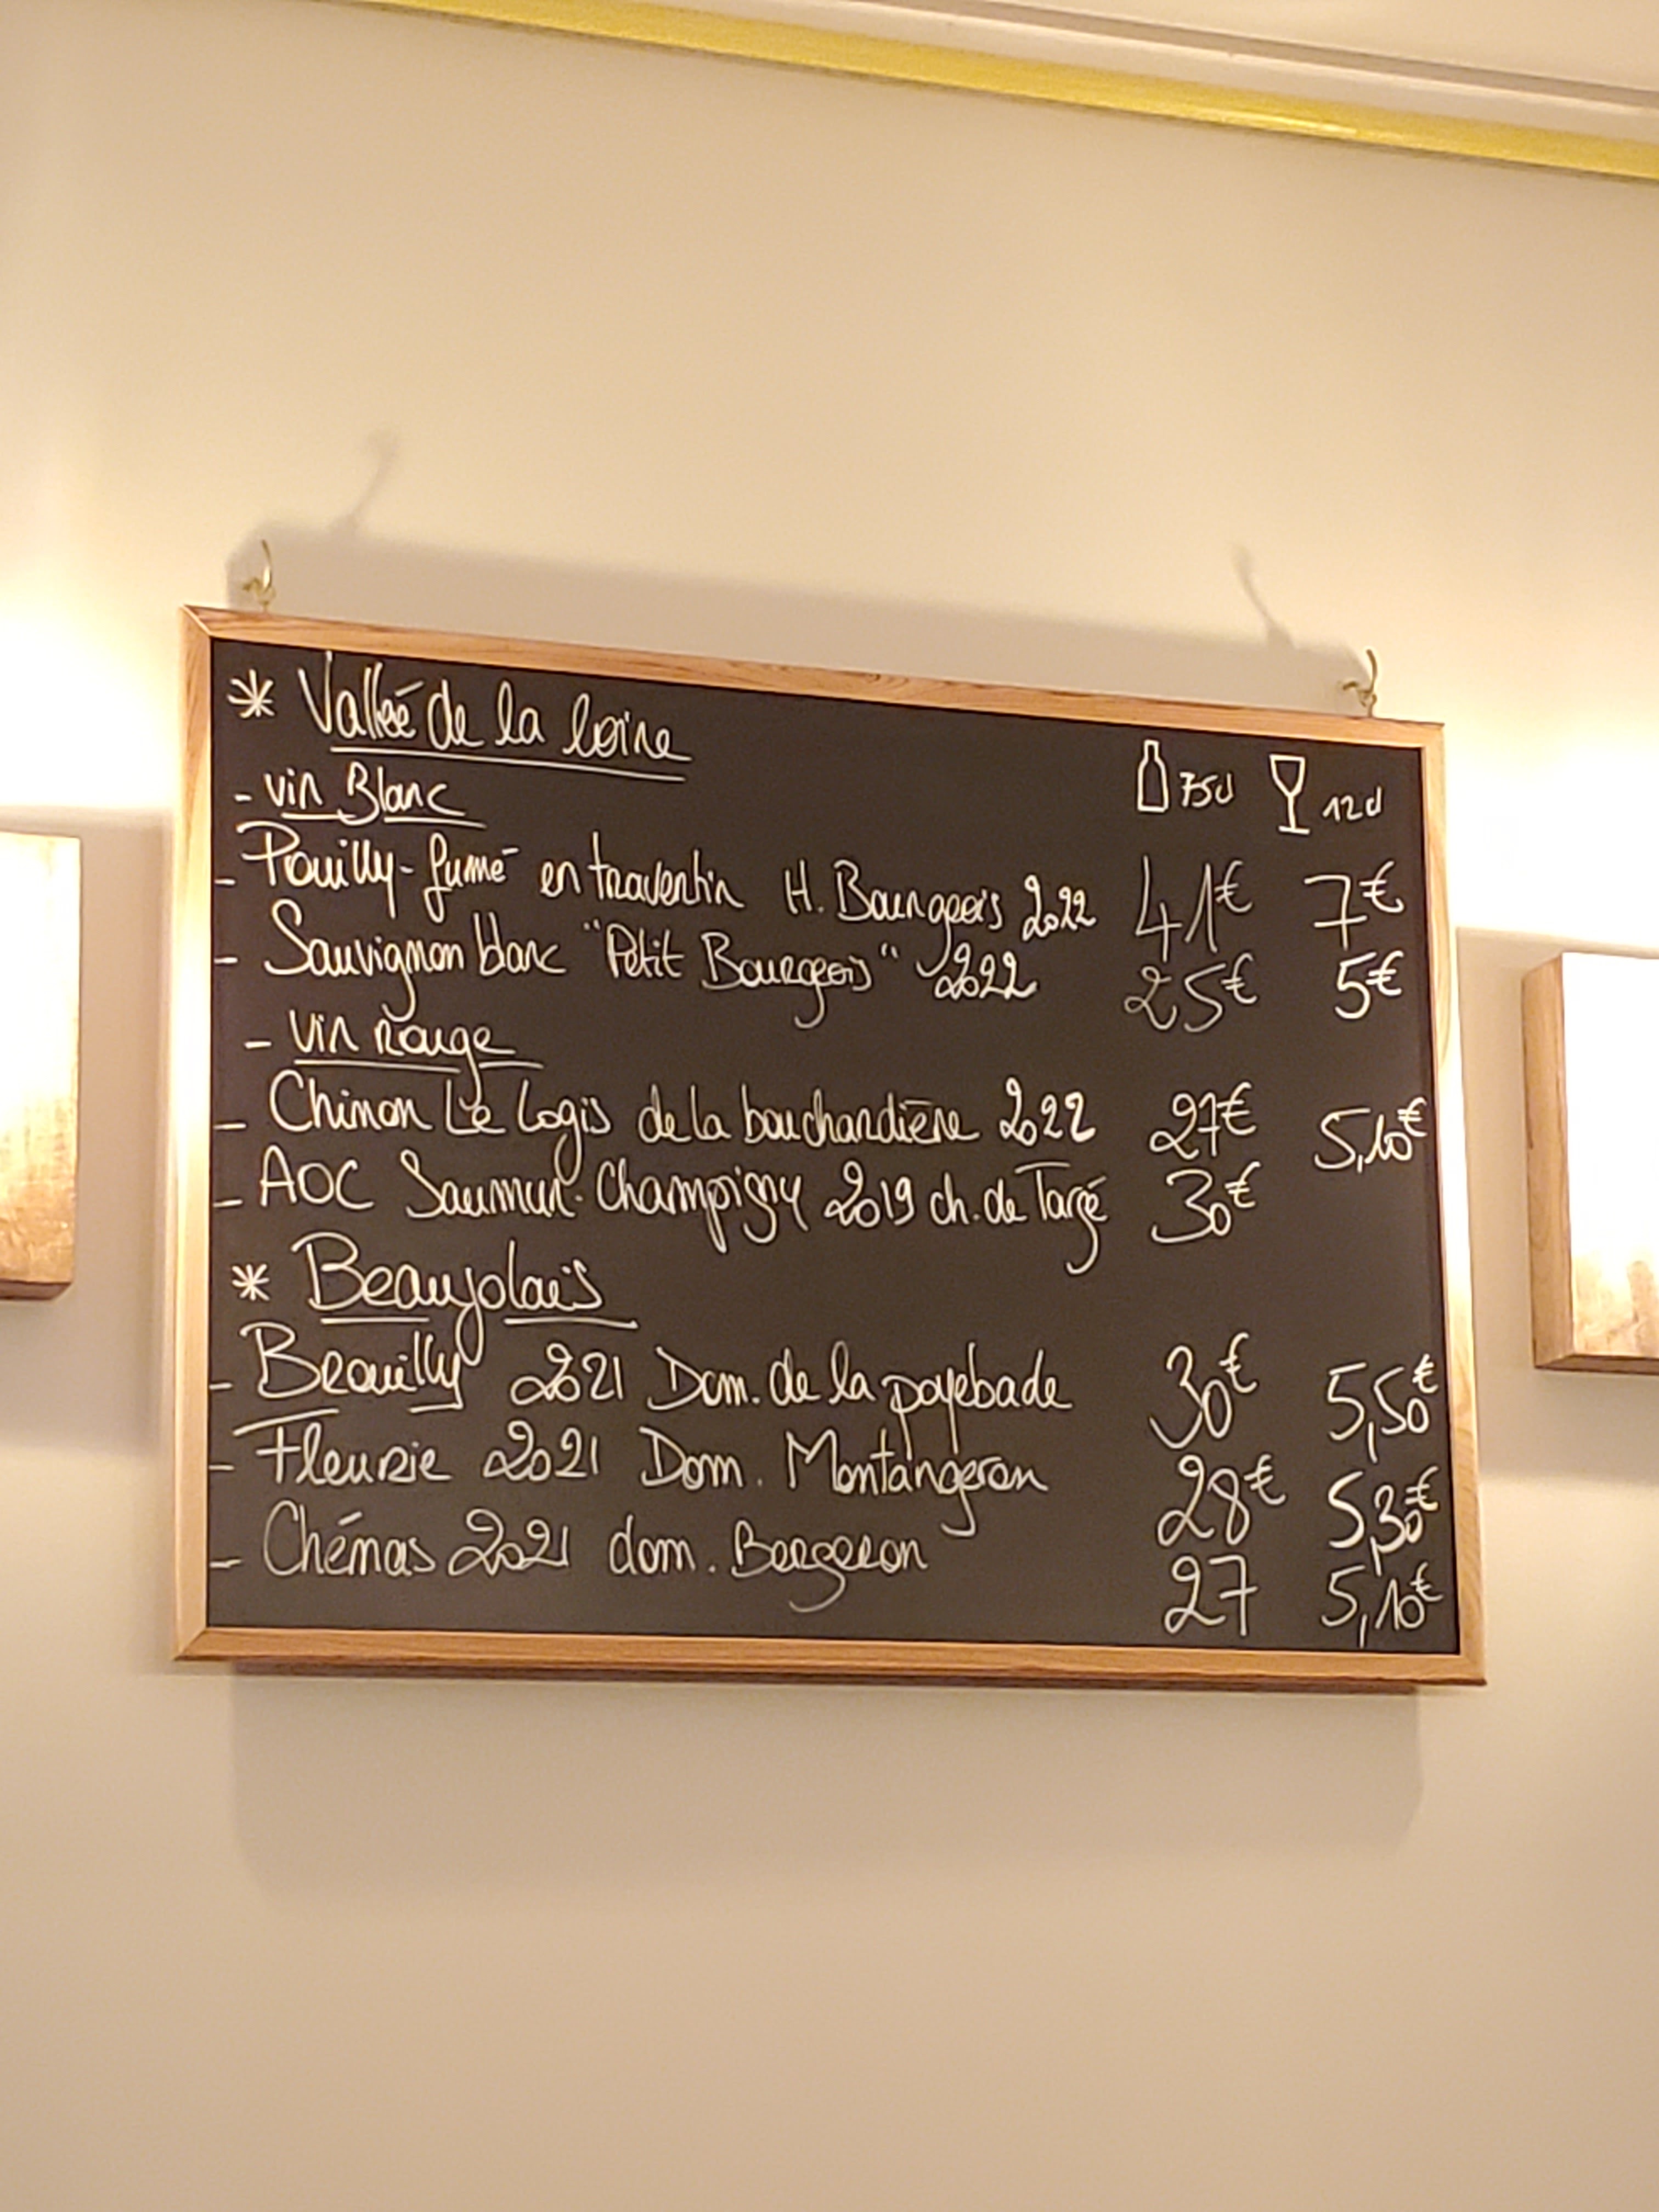 * Vallée de la loire
75cl 12cl
- vin Blanc
- Pouilly-fumé en travertin H. Bourgeois 2022 41€ 7€
- Sauvignon blanc "Petit Bourgeois" 2022 25€ 5€
- vin rouge
- Chinon Le Logis de la bouchardière 2022 27€ 5,10€
- AOC Saumur-Champigny 2019 ch. de Targé 30€
* Beaujolais
- Brouilly 2021 Dom. de la payebade 30€ 5,50€
- Fleurie 2021 Dom. Montangeron 28€ 5,30€
- Chénas 2021 dom. Bergeron 27 5,10€